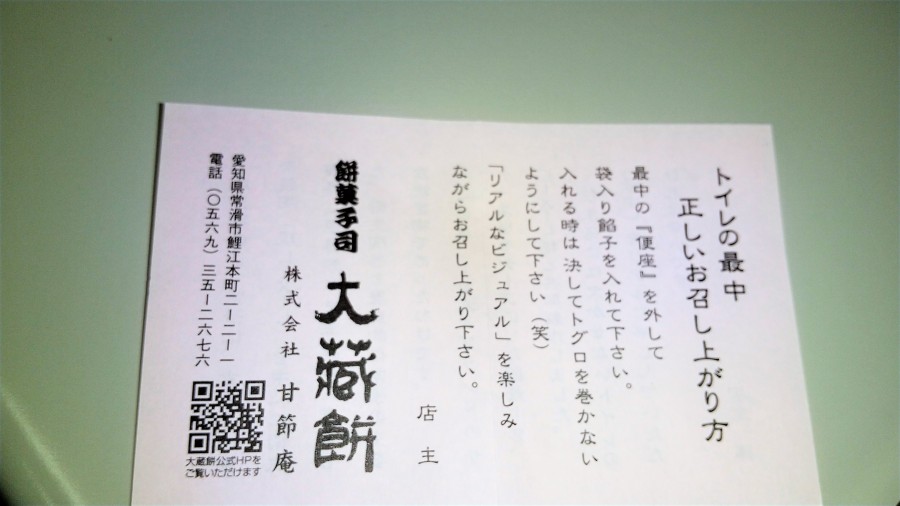 トイレの最中
正しいお召し上がり方
最中の『便座』を外して
袋入り餡子を入れて下さい。
入れる時は決してトグロを巻かない
ようにして下さい（笑）
「リアルなビジュアル」を楽しみ
ながらお召し上がり下さい。
店主
餅菓子司 大蔵餅
株式会社 甘節庵
愛知県常滑市鯉江本町二ー二ー一
電話（〇五六九）三五ー二六七六
大蔵餅公式HPを
ご覧いただけます